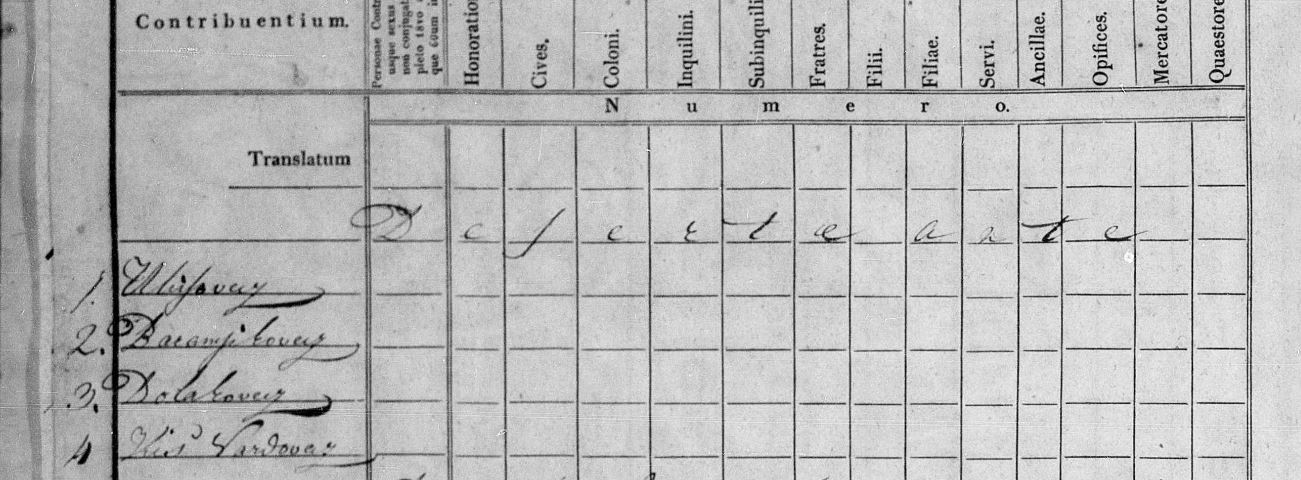 Contribuentium.
Personae Contr
usque sexus
non conjugat
pleto 18vo
que 60um i
Honoratio
Cives.
Coloni.
Inquilini.
Subinquili
Fratres.
Filii.
Filiae.
Servi.
Ancillae.
Opifices.
Mercatore
Quaestore
Numero.
Translatum
D e s e r t æ a n t e
1.
2.
3. Dolakovecz
4 Kis